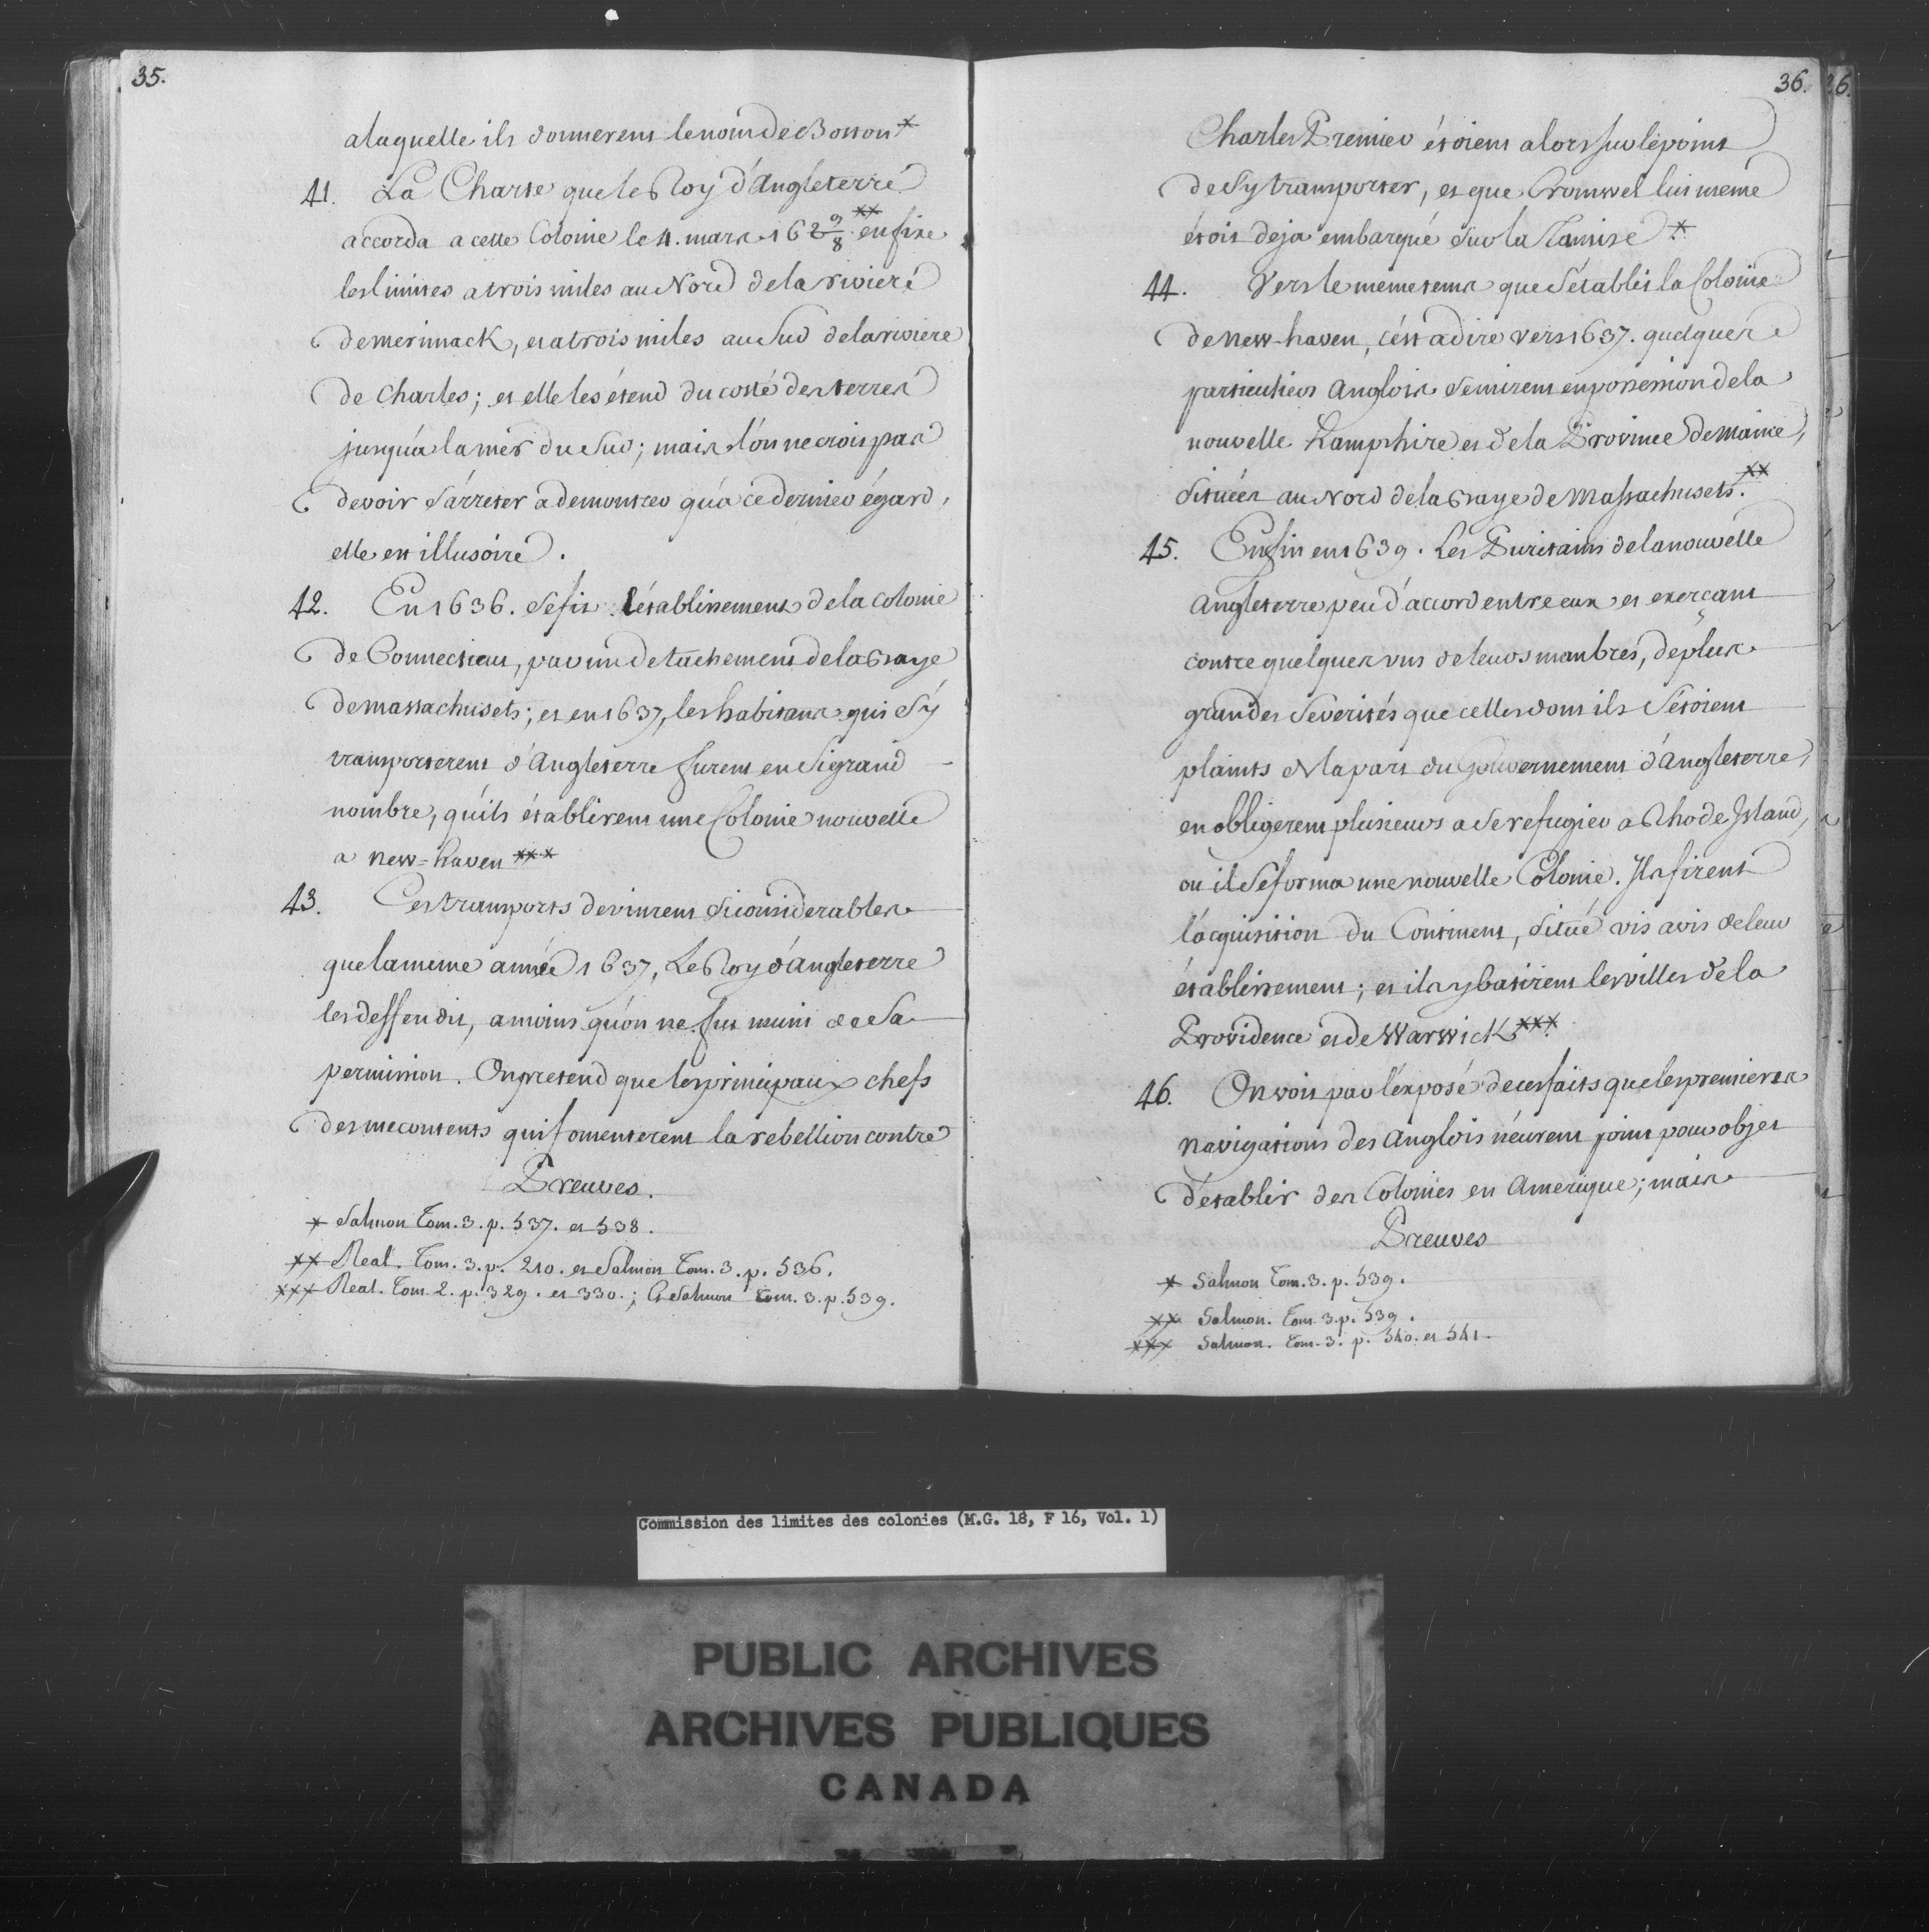 35.
a laquelle ils donnerent le nom de Boston *
41. La Charte que le Roy d'Angleterre
accorda a cette Colonie le 4. mars 162 9/8 ** en fixe
les limites a trois miles au Nord de la riviere
de merimack, et a trois miles au Sud de la riviere
de Charles; et elle les étend du costé des terres
jusqu'a la mer du Sud; mais l'on ne crois pas
devoir s'arreter a demontrer qu'a ce dernier égard,
elle est illusoire.
42. En 1636. se fit l'établissement de la colonie
de Connecticut, par un detachement de la Baye
de massachusets; et en 1637, les habitans qui s'y
transporterent d'Angleterre furent en si grand
nombre, qu'ils établirent une Colonie nouvelle
a new-haven ***
43. Ces transports devinrent si considerables
que la meme année 1637, Le Roy d'Angleterre
les deffendit, a moins qu'on ne fut muni de Sa
permission. On pretend que les principaux chefs
des mecontents qui fomenterent la rebellion contre
Preuves.
* Salmon Tom. 3. p. 537. et 538.
** Real. Tom. 3. p. 210. et Salmon Tom. 3. p. 536.
*** Real. Tom. 2. p. 329. et 330.; et Salmon Tom. 3. p. 539.
36.
Charles Premier étoient alors sur le point
de s'y transporter, et que Cromwel lui meme
étoit deja embarqué sur la Tamise *
44. Vers le meme tems que s'établit la Colonie
de new-haven, c'est a dire vers 1637. quelques
particuliers Anglois se mirent en possession de la
nouvelle hampshire et de la Province de Maine,
situées au Nord de la Baye de Massachusets. **
45. Enfin en 1639. Les Puritains de la nouvelle
Angleterre peu d'accord entre eux et exerçant
contre quelques uns de leurs membres, de plus
grandes severités que celles dont ils s'étoient
plaints de la part du Gouvernement d'Angleterre,
en obligerent plusieurs a se refugier a Rhode Island,
ou il se forma une nouvelle Colonie. Ils firent
l'acquisition du Continent, situé vis a vis de leur
établissement; et ils y batirent les villes de la
Providence et de Warwick ***
46. On voit par l'exposé de ces faits que les premieres
navigations des Anglois n'eurent point pour objet
d'établir des Colonies en Amerique; mais
Preuves
* Salmon Tom. 3. p. 539.
** Salmon. Tom. 3. p. 539.
*** Salmon. Tom. 3. p. 540. et 541.
Commission des limites des colonies (M.G. 18, F 16, Vol. 1)
PUBLIC ARCHIVES
ARCHIVES PUBLIQUES
CANADA